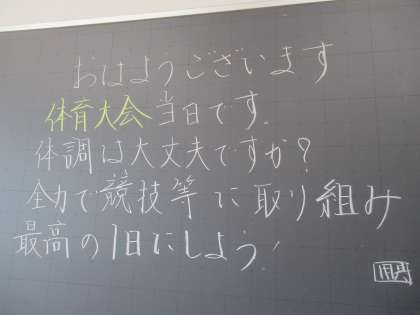 おはようございます
体育大会当日です。
体調は大丈夫ですか?
全力で競技等に取り組み
最高の1日にしよう!